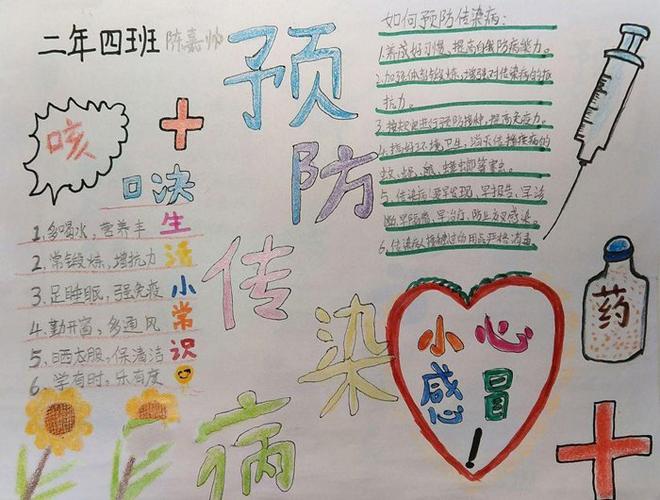 二年四班 陈嘉帅
预
防
传
染
病
咳
口决
生
活
小
常
识
1.多喝水,营养丰
2.常锻炼,增抗力
3.足睡眠,强免疫
4.勤开窗,多通风
5.晒衣服,保清洁
6.学有时,乐有度
如何预防传染病:
1.养成好习惯、提高自我防病能力。
2.加强体育锻炼、增强对传染病的抵
抗力。
3.按规定进行预防接种,提高免疫力。
4.搞好环境卫生,消灭传播疾病的
蚊、蝇、鼠、蟑螂等害虫。
5.传染病要早发现,早报告、早诊
断,早隔离,早治疗,防止交叉感染。
6.传染病人接触过的用品严格消毒
小心
感冒
!
药